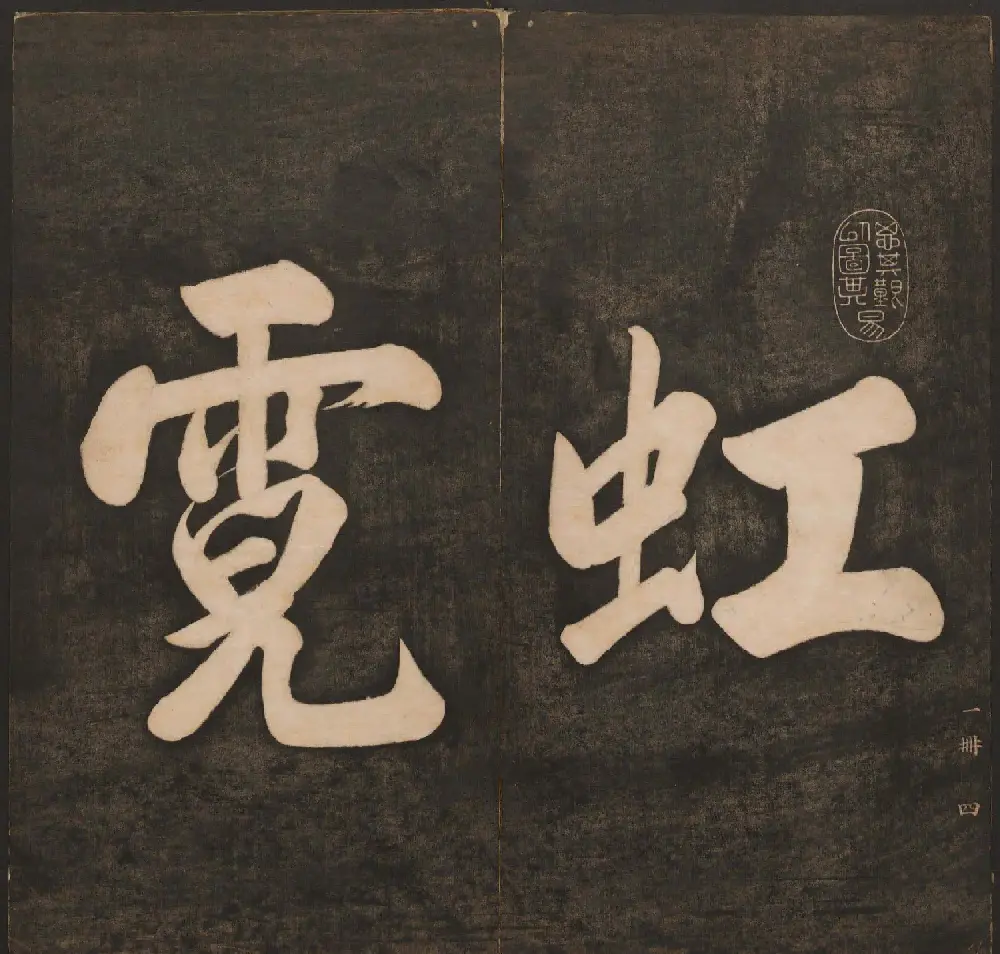 一 冊 四
虹
霓